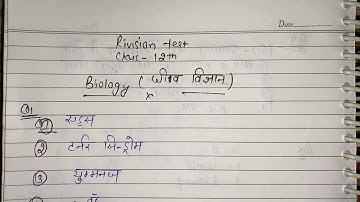 Date
Rivision test
Class - 12th
Biology ( जीव विज्ञान )
Q1
1 एड्स
2 टर्नर सिन्ड्रोम
3 युग्मनज